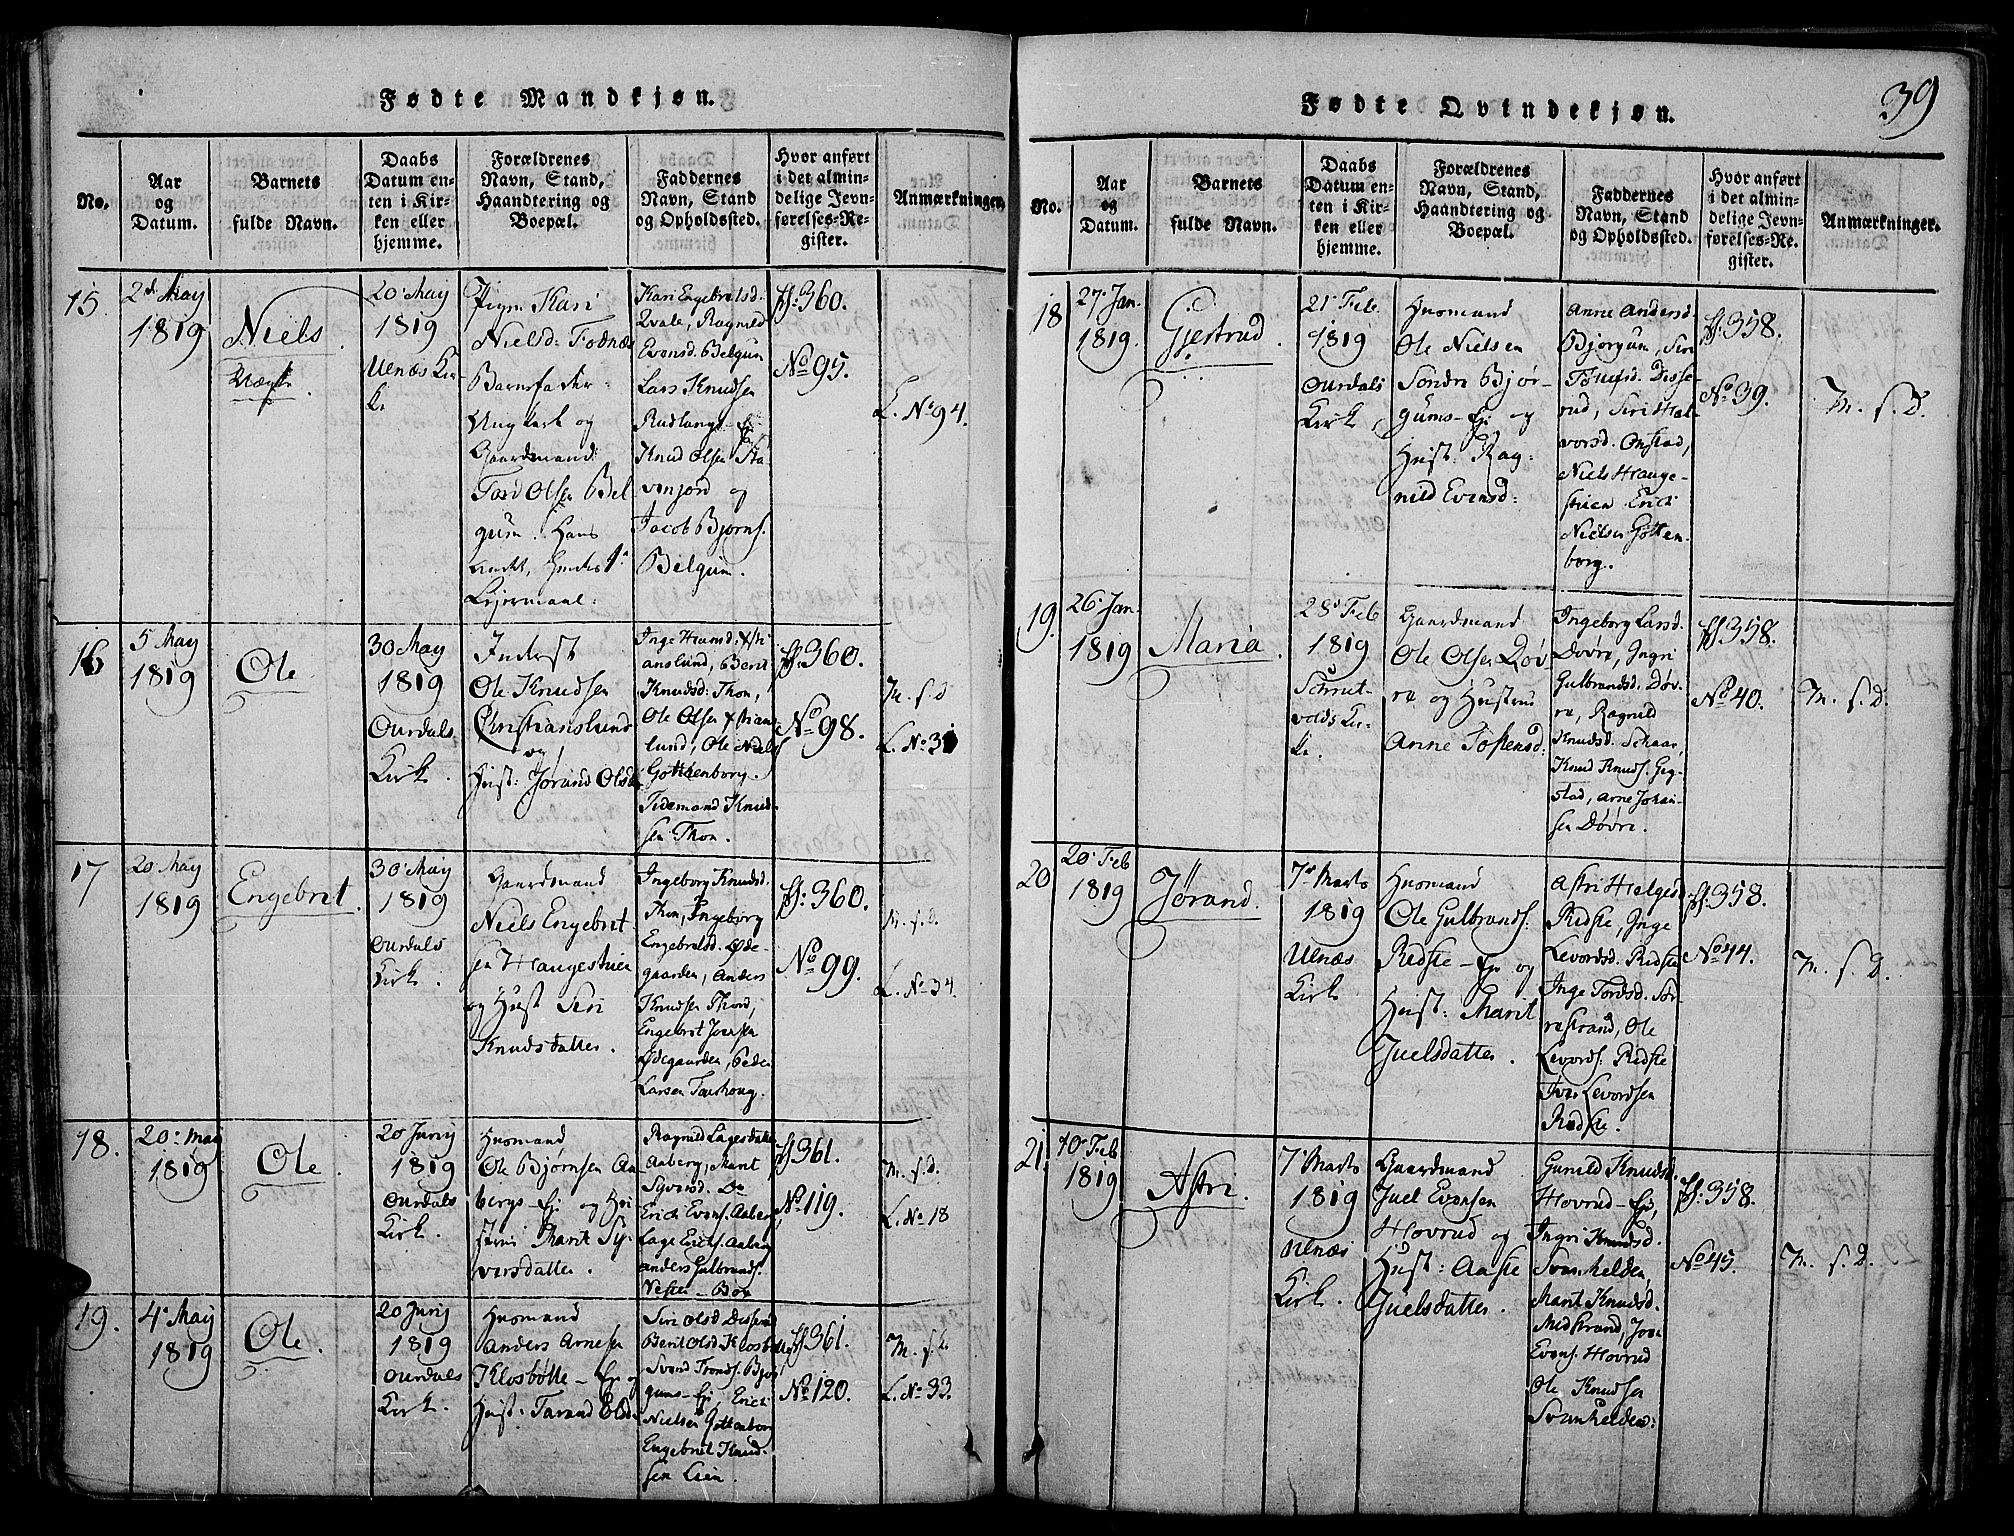 Fødte Mandkjøn.
No.
Aar
og
Datum.
Barnets
fulde Navn.
Daabs
Datum en-
ten i Kir-
ken eller
hjemme.
Forældrenes
Navn, Stand,
Haandtering og
Boepæl.
Faddernes
Navn, Stand
og Opholdssted.
Hvor anført
i det almin-
delige Jevn-
førelses-Re-
gister.
Anmærkninger.
15.
2d. May
1819
Niels
Uægte.
20 May
1819
Ulnæs Kir-
k.
Pigen Kari
Nielsd: Fodnæs
Barnefader:
Ungkarl og
Gaardmand:
Tord Olsen Bel
gum. Hans
1te
Leiermaal.
Kari Engebretsd.
Qvale, Ragnild
Evensd. Belgum
Lars Knudsen
Rudlangs-Ej
Knud Olsen Sta-
venjord og
Jacob Bjørns.
Belgum.
ff: 360.
No 95.
L. No 94.
16
5 May
1819
Ole
30 May
1819
Ourdals
Kirk.
Inderst
Ole Knudsen
Christianslund
og
Hust: Jørand Olsd.
Inge Hansd. Xsti
anslund, Berit
Knudsd: Thon,
Ole Olsen Xstians
lund, Ole Niels
Gottenborg.
Tidemand Knud-
sen Thon.
ff: 360.
No 98.
M. s. D
L. No 31
17
20 May
1819
Engebret.
30 May
1819
Ourdals
Kirk.
Gaardmand
Niels Engebret-
sen Haugestuen
og Hust Siri
Knudsdatter.
Ingeborg Knudsd.
Thon, Ingeborg
Engebretsd. Øde-
gaarden, Anders
Knudsen Thord,
Engebret Iversen
Ødegaarden, Peder
Larsen Tourhoug.
ff: 360.
No 99.
M. s. D.
L. No 34.
18.
20 May
1819
Ole.
20 Junij
1819
Ourdals
Kirk.
Huusmand
Ole Bjørnsen Aa
bergs-Ej og Hu
stru Marit Sy-
versdatter.
Ragnild Lagesdatter
Aaberg, Marit
Syversd. Do
Erich Evens. Aaberg
Lage Erichs. Aaberg
Anders Gulbrands.
Nesten-Bøe
ff 361.
No 119.
M. s. D.
L. No 18
19.
4 May
1819
Ole.
20 Junij
1819
Ourdals
Kirk.
Huusmand
Anders Arnesen
Klosbøtte-Ej og
Hust: Tarand Olsd
Siri Olsd Disserud
Berit Olsd Klosbøtte
Svend Tronds. Bjør
gums-Ej, Erich
Nielsen Gottenborg
Engebret Knud-
sen Lien.
ff 361.
No 120.
M. s. D.
L. No 33.
Fødte Qvindekjøn.
39
No.
Aar
og
Datum.
Barnets
fulde Navn.
Daabs
Datum en-
ten i Kir-
ken eller
hjemme.
Forældrenes
Navn, Stand,
Haandtering og
Boepæl.
Faddernes
Navn, Stand
og Opholdssted.
Hvor anført
i det almin-
delige Jevn-
førelses-Re-
gister.
Anmærkninger.
18
27 Jan.
1819.
Gjertrud.
21 Feb
1819
Ourdals
Kirk,
Huusmand
Ole Nielsen
Søndre Bjør-
gums-Ej og
Hust: Rag-
nild Evensd:
Anne Andersd
Bjørgum, Siri
Disse-
rud, Siri Hal
vorsd. Onstad,
Niels Hauge-
stuen Erich
Nielsen Gotten-
borg.
ff: 358.
No 39.
M. s. D.
19.
26 Jan.
1819
Maria.
28 Feb
1819
Schrut-
volds Kir-
k.
Gaardmand
Ole Olsen Døv
re og Hustrue
Anne Tostensd:
Ingeborg Larsd.
Døvre, Ingri
Gulbrandsd. Døv-
re, Ragnild
Knudsd. Schaar
Knud Knuds. Gig-
stad, Arne Johan-
sen Døvre.
ff: 358.
No 40.
M. s. D.
20
20 Feb
1819
Jørand.
7 Marts
1819
Ulnæs
Kirk.
Huusmand
Ole Gulbrands:
Ridste-Ej og
Hust: Marit
Juelsdatter.
Astri Helges
Ridste, Inge
Levordsd. Ridste
Inge Tordsd. Sør-
restrand, Ole
Levords: Ridste
Iver Levordsen
Ridste.
ff: 358.
No 44.
M. s. D.
21.
10 Feb
1819
Astri.
7 Marts
1819
Ulnæs
Kirk.
Gaardmand
Juel Evensen
Hovrud og
Hust: Aaste
Juelsdatter.
Gunild Knudsd.
Hovrud-Ej,
Ingri Knudsd.
Svenhelden,
Marit Knudsd.
Midstrand, Iver
Evens. Hovrud
Ole Knudsen
Svenhelden:
ff: 358.
No 45.
M. s. D.